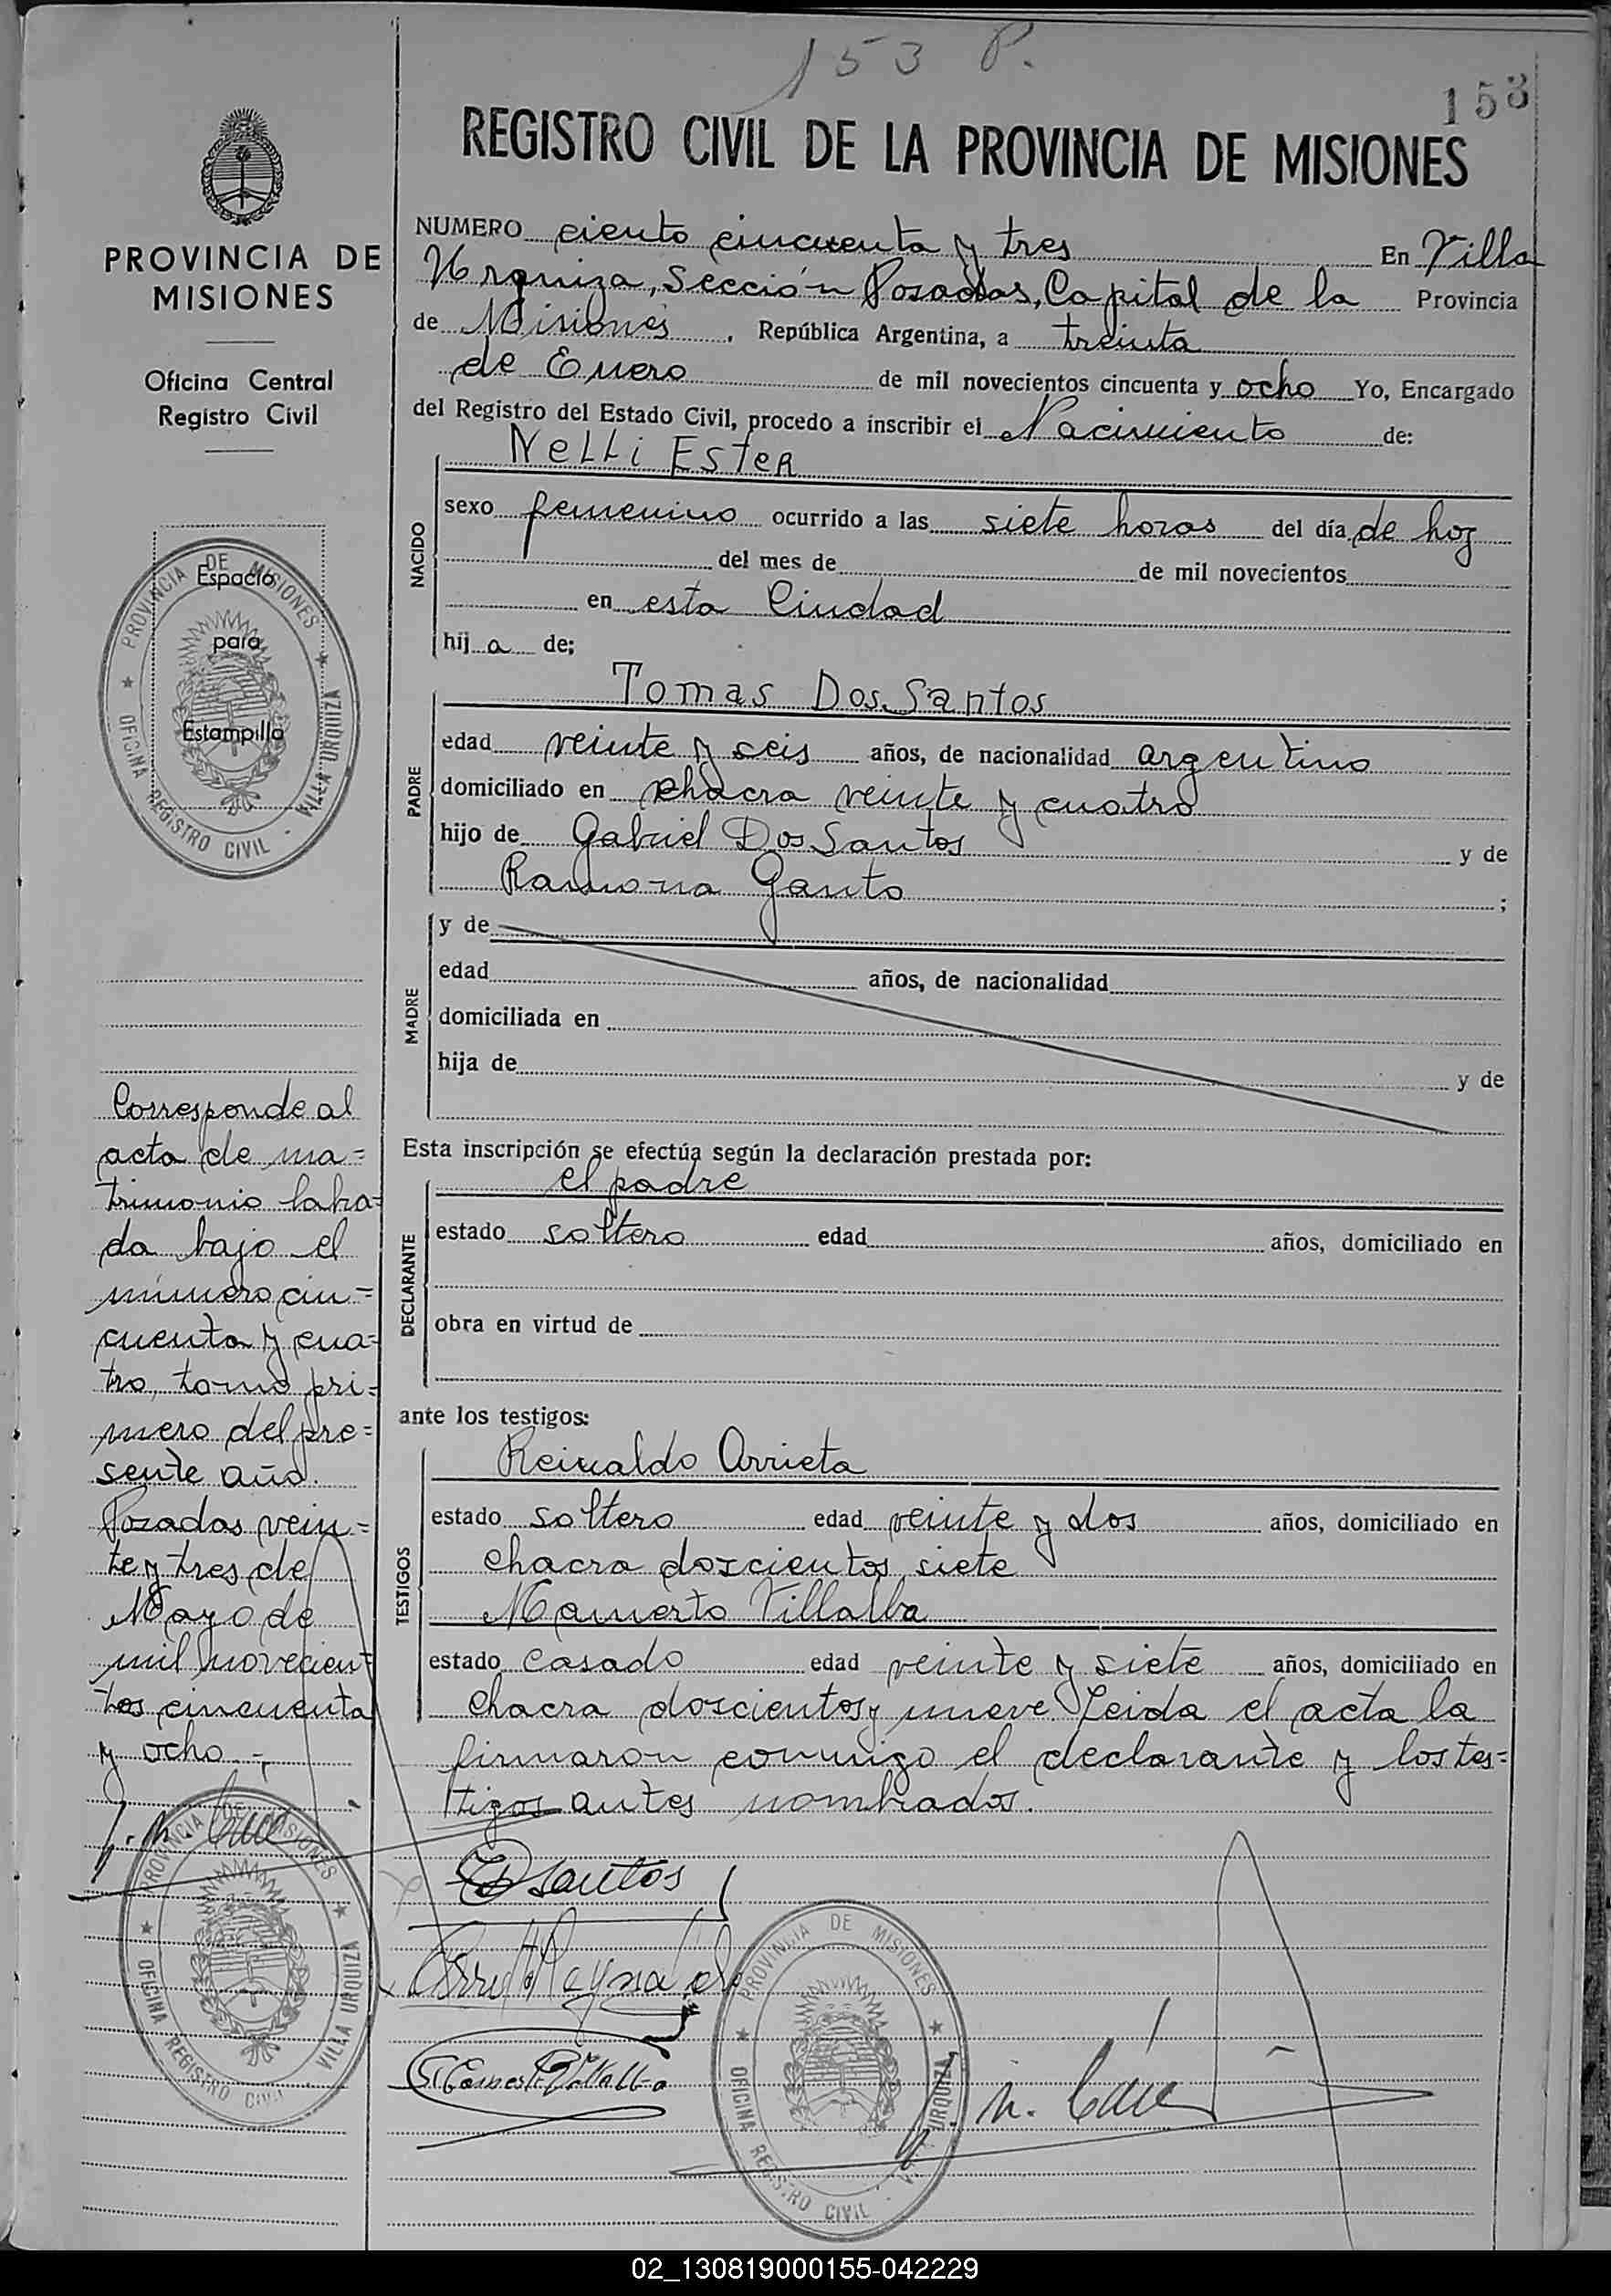 153 P.
153
REGISTRO CIVIL DE LA PROVINCIA DE MISIONES
PROVINCIA DE
MISIONES
Oficina Central
Registro Civil
PROVINCIA DE MISIONES
OFICINA REGISTRO CIVIL - VILLA URQUIZA
Espacio
para
Estampilla
Corresponde al
acta de ma=
trimonio labra=
da bajo el
número cin=
cuenta y cua=
tro, tomo pri=
mero del pre=
sente año.
Posadas vein=
te y tres de
Mayo de
mil novecien
tos cincuenta
y ocho.-
PROVINCIA DE MISIONES
OFICINA REGISTRO CIVIL VILLA URQUIZA
NUMERO ciento cincuenta y tres En Villa
Urquiza, Sección Posadas, Capital de la Provincia
de Misiones, República Argentina, a treinta
de Enero de mil novecientos cincuenta y ocho Yo, Encargado
del Registro del Estado Civil, procedo a inscribir el Nacimiento de:
NACIDO
NeLLi EsteR
sexo femenino ocurrido a las siete horas del día de hoy
del mes de de mil novecientos
en esta Ciudad
hij a de;
PADRE
Tomas Dos Santos
edad veinte y seis años, de nacionalidad argentino
domiciliado en chacra veinte y cuatro
hijo de Gabriel Dos Santos y de
Ramona Ganto ;
MADRE
y de
edad años, de nacionalidad
domiciliada en
hija de y de
Esta inscripción se efectúa según la declaración prestada por:
DECLARANTE
el padre
estado soltero edad años, domiciliado en
obra en virtud de
ante los testigos:
TESTIGOS
Reinaldo Arrieta
estado soltero edad veinte y dos años, domiciliado en
chacra doscientos siete
Mamerto Villalba
estado casado edad veinte y siete años, domiciliado en
chacra doscientos y nueve. Leida el acta la
firmaron conmigo el declarante y los tes=
tigos antes nombrados.
DSantos
PROVINCIA DE MISIONES
OFICINA REGISTRO CIVIL - VILLA URQUIZA
02_130819000155-042229